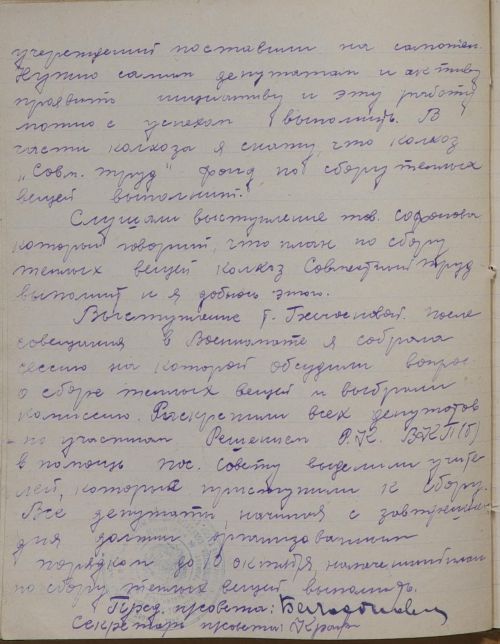 учереждений поставили на самотек.
Нужно самим депутатам и активу
проявить инициативу и эту работу
можно с успехом выполнить. В
части колхоза я скажу, что колхоз
„Совм. труд" фонд по сбору теплых
вещей выполнит.
Слушали выступление тов. Сафонова
который говорит, что план по сбору
теплых вещей колхоз Совместный труд
выполнит и я добьюсь этого.
Выступление т. после
совещания в Военкомате я собрала
сессию на которой обсудили вопрос
о сборе теплых вещей и выбрали
комиссию. Раскрепили всех депутатов
по участкам Решением Р.К. ВКП(б)
в помощь пос. совету выделили учите-
лей, которые приступили к сбору.
Все депутаты, начиная с завтрешнего
дня должны организованным
порядком до 10 октября, намеченный план
по сбору теплых вещей выполнить.
Пред. п/совета:
Секретарь п/совета: